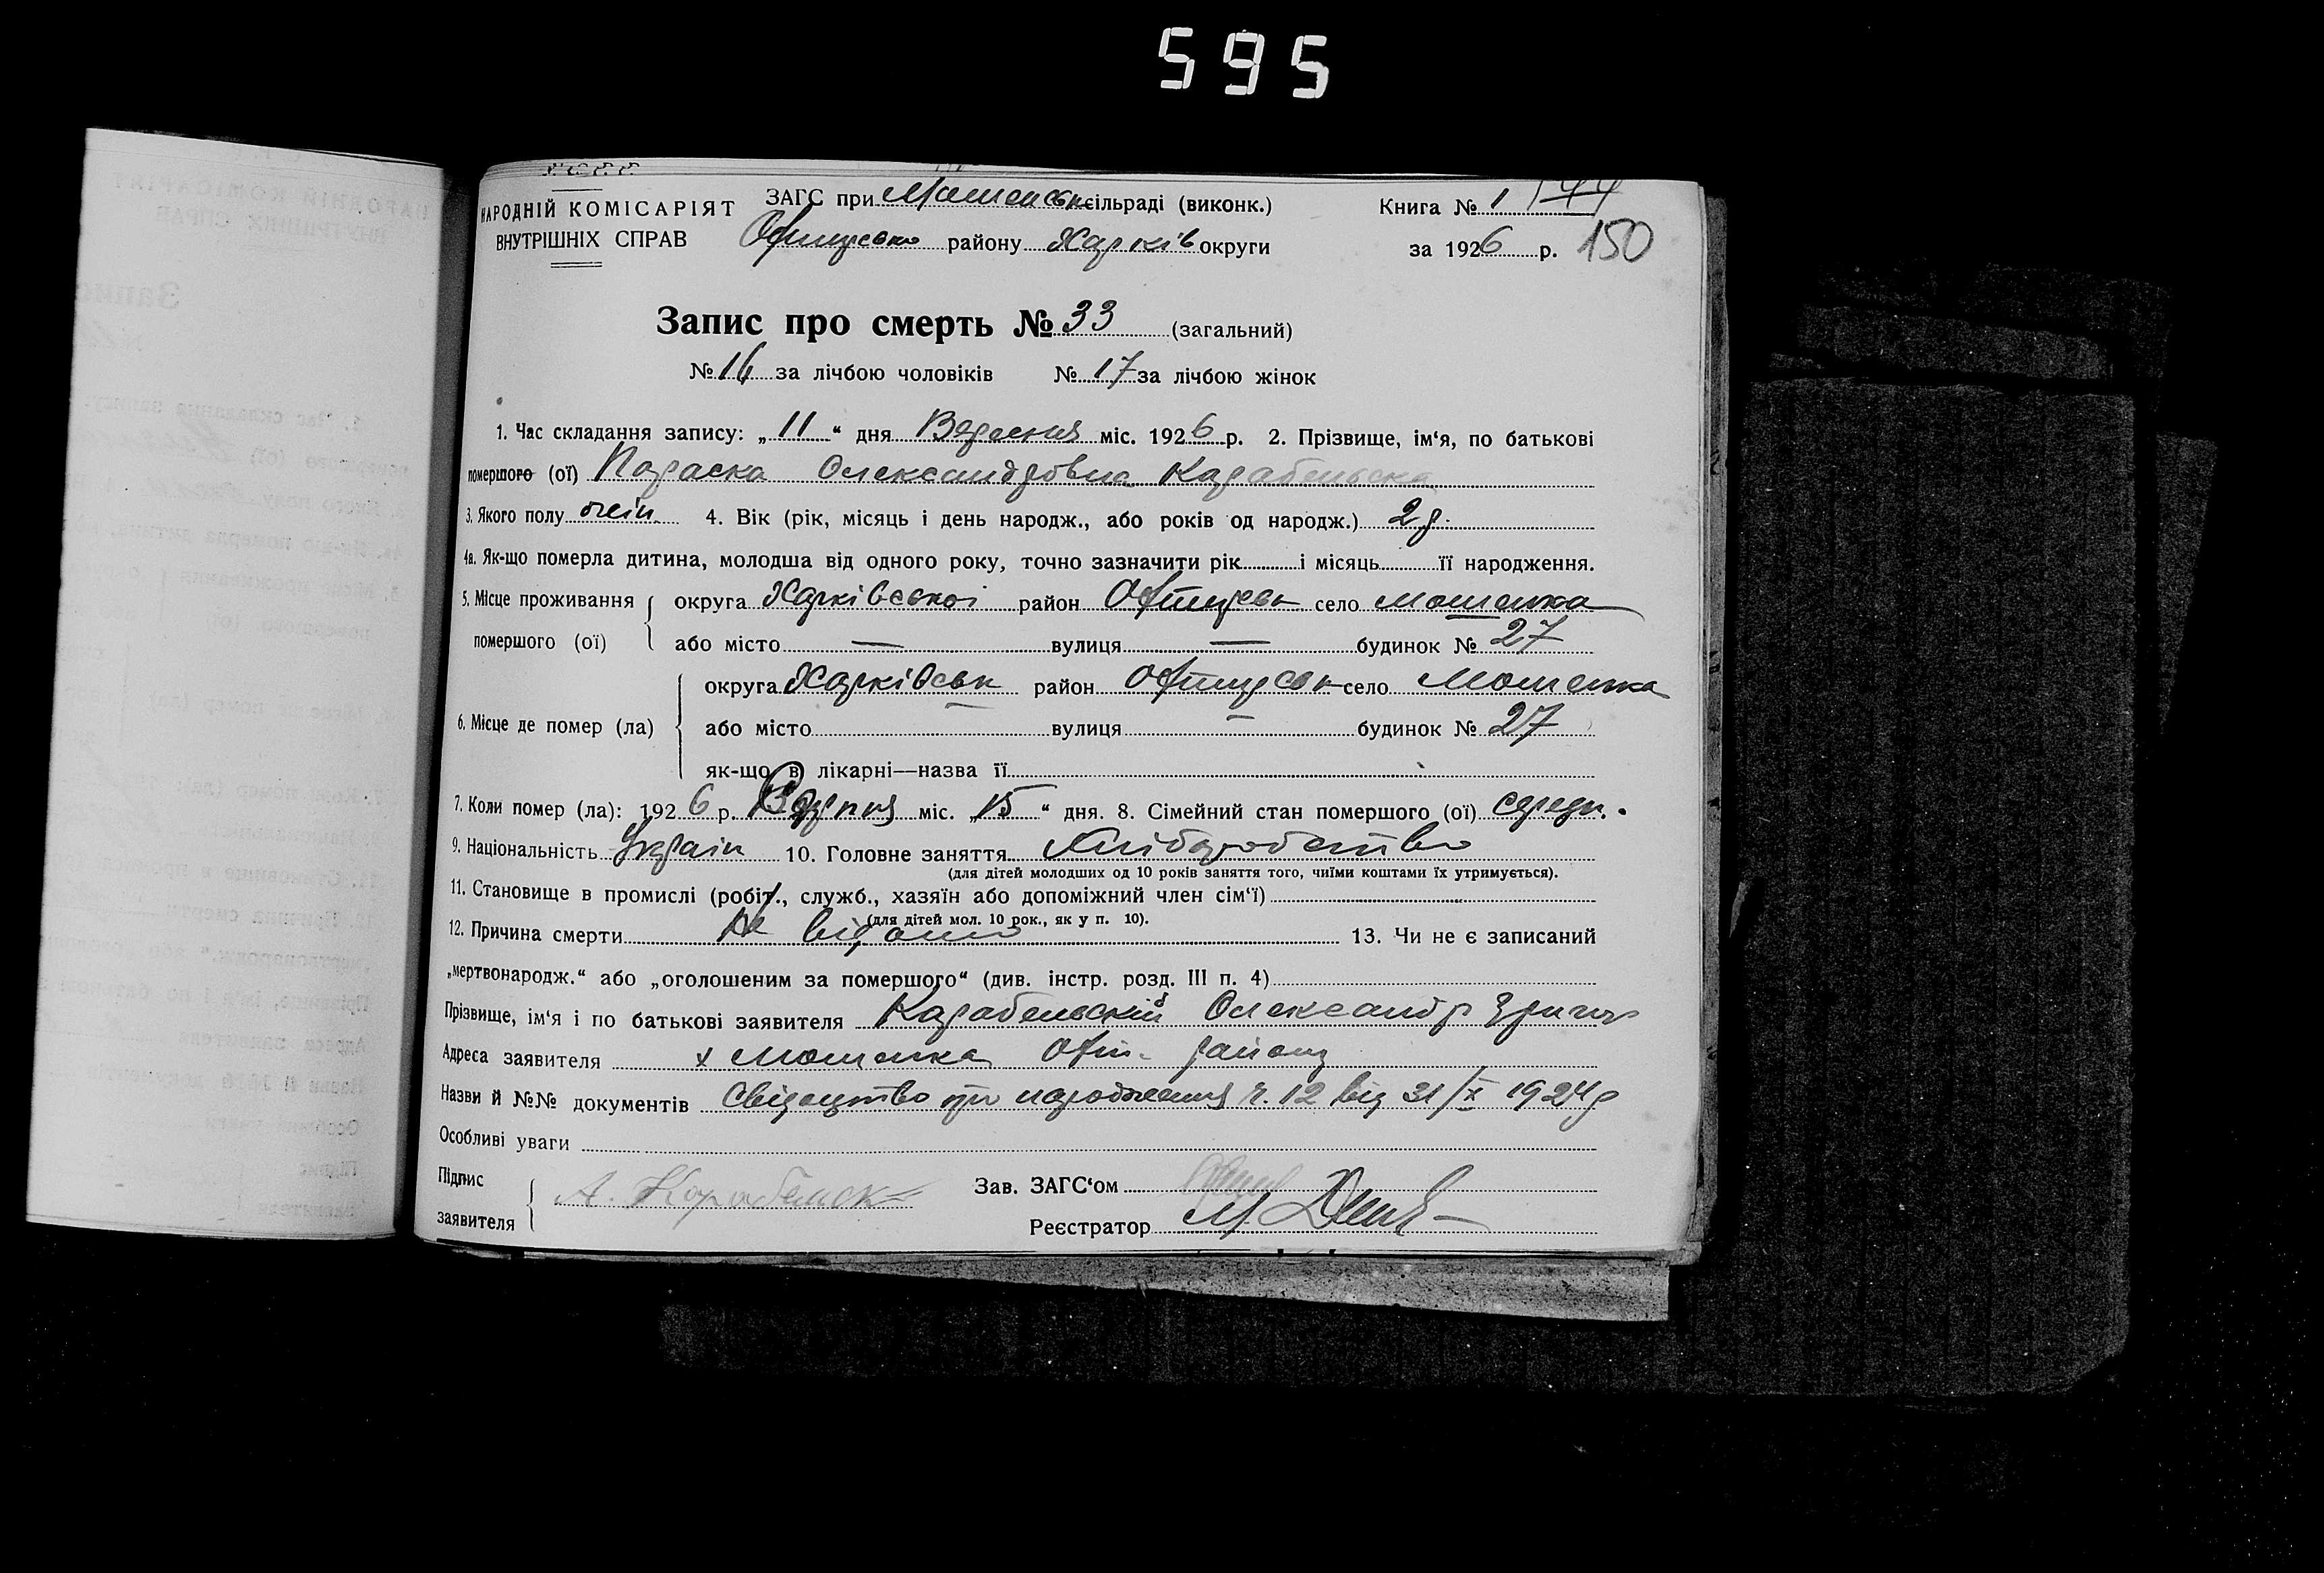 595
У.С.Р.Р.
НАРОДНІЙ КОМІСАРІЯТ
ВНУТРІШНІХ СПРАВ
ЗАГС при Мошенськ сільраді (виконк.)
району Харків округи
Книга № 1
за 1926 р. 150
Запис про смерть № 33 (загальний)
№ 16 за лічбою чоловіків № 17 за лічбою жінок
1. Час складання запису: „ 11 “ дня Вересня міс. 1926 р. 2. Прізвище, ім‘я, по батькові
помершого (ої) Параска Олександровна Карабельска
3. Якого полу жін. 4. Вік (рік, місяць і день народж., або років од народж.) 2 р.
4а. Як-що померла дитина, молодша від одного року, точно зазначити рік і місяць її народження.
5. Місце проживання помершого (ої) округа Харківської район село Мошенка
або місто — вулиця — будинок № 27
6. Місце де помер (ла) округа Харківськ район село Мошенка
або місто вулиця — будинок № 27
як-що в лікарні—назва її
7. Коли помер (ла): 1926 р. Серпня міс. „ 15 “ дня. 8. Сімейний стан помершого (ої) середн.
9. Національність Украін 10. Головне заняття Хліборобство
(для дітей молодших од 10 років заняття того, чиїми коштами їх утримується).
11. Становище в промислі (робіт., служб., хазяїн або допоміжний член сім‘ї)
(для дітей мол. 10 рок., як у п. 10).
12. Причина смерти не відомо 13. Чи не є записаний
„мертвонародж.“ або „оголошеним за помершого“ (див. інстр. розд. III п. 4)
Прізвище, ім‘я і по батькові заявителя Карабельский Олександр
Адреса заявителя х Мошенка району
Назви й №№ документів Свідоцтво про народження ч. 12 від 31/X 1924 р
Особливі уваги
Підпис заявителя А. Карабельск
Зав. ЗАГС‘ом
Реєстратор